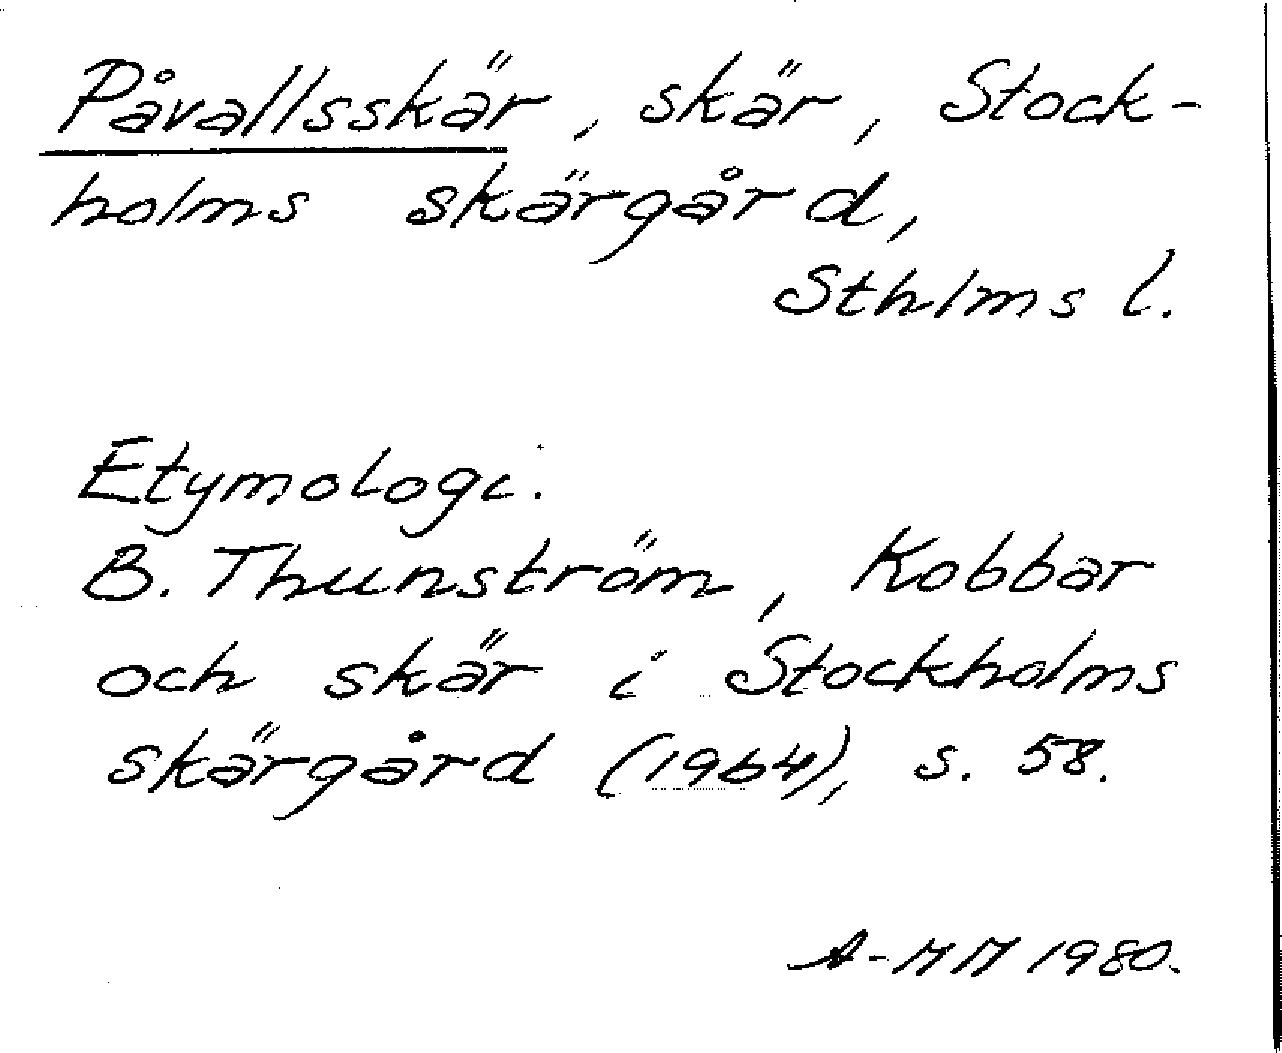 Påvallsskär, skär, Stock-
holms skärgård,
Sthlms l.
Etymologi.
B. Thunström, Kobbar
och skär i Stockholms
skärgård (1964), s. 58.
A-MM 1980.